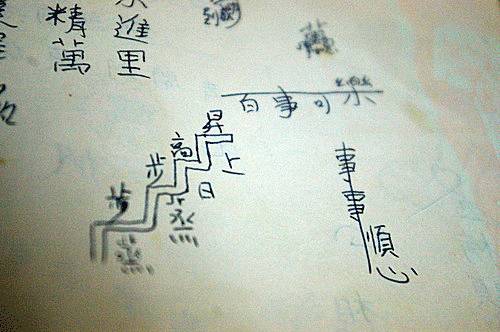 百事可樂
步步高昇
蒸蒸日上
事事順心
進里
精萬